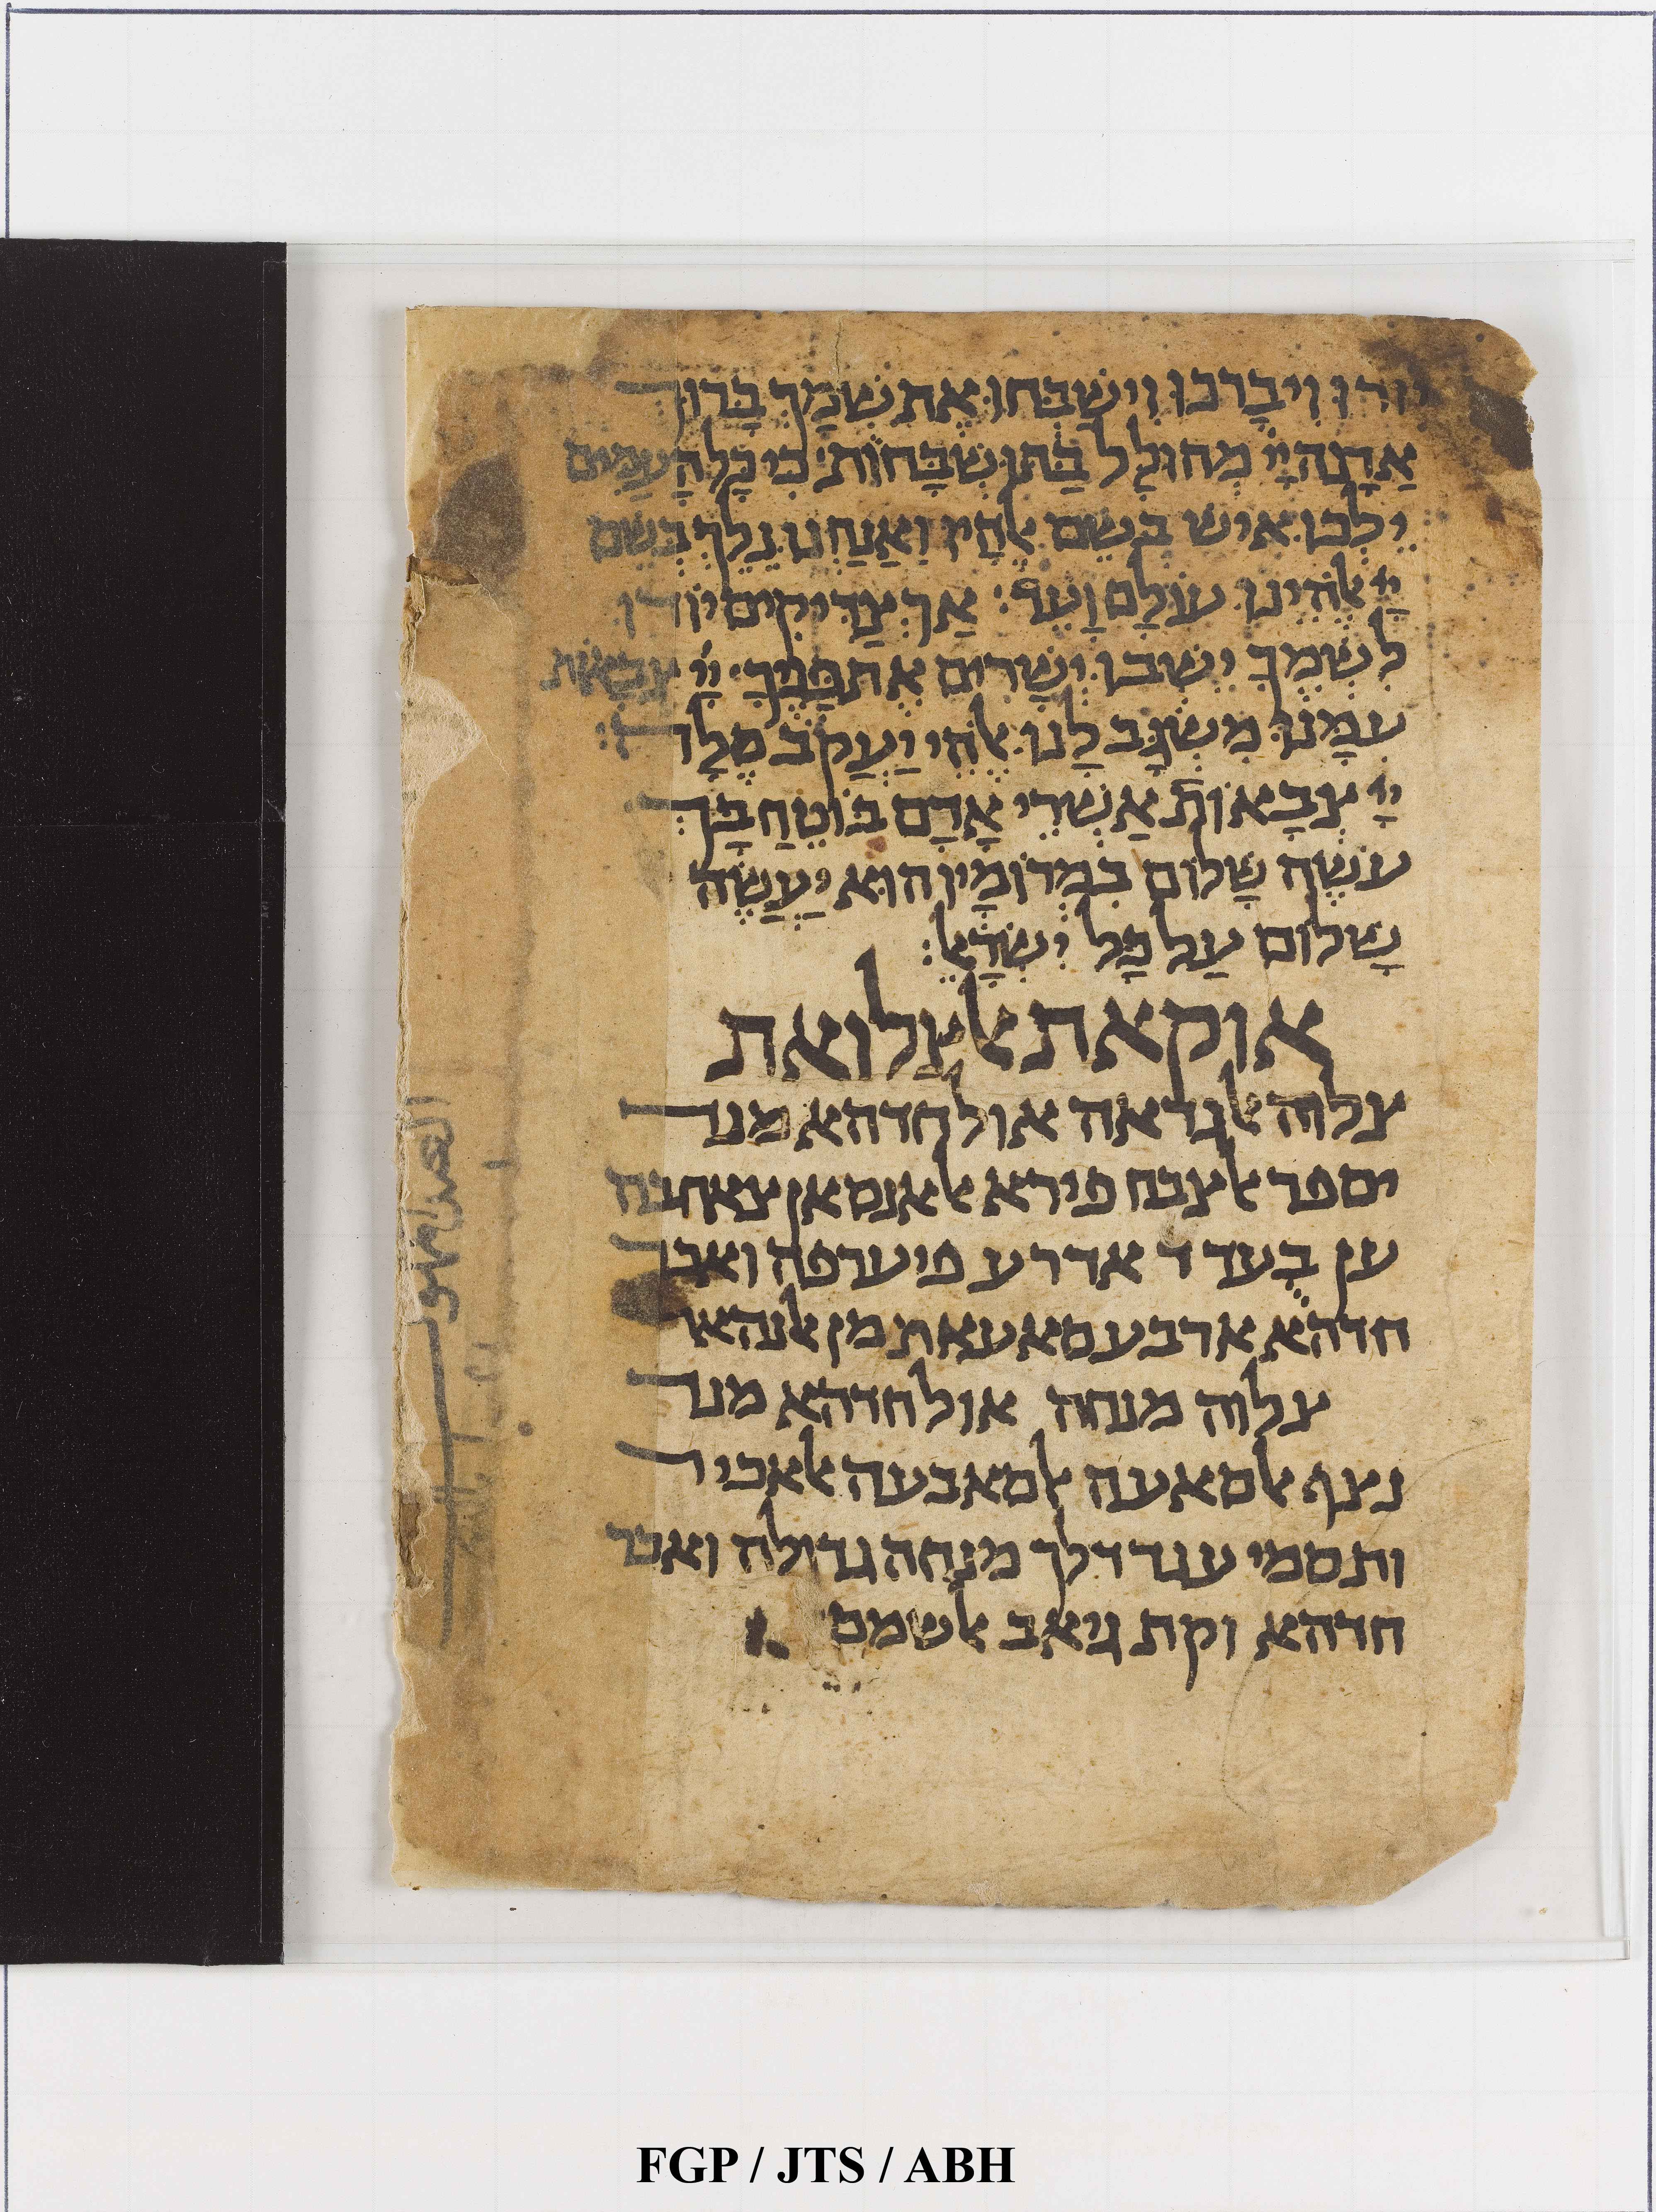 יודו ויברכו וישבחו את שמך ברוך
אתה יי מחולל בתושבחות׃ כי כל העמים
ילכו איש בשם אלהיו ואנחנו נלך בשם
יי אלהינו עולם ועד׃ אך צדיקים יודו
לשמך ישבו ישרים את פניך׃ יי צבאות
עמנו משגב לנו אלהי יעקב סלה׃
יי צבאות אשרי אדם בוטח בך
עושה שלום במרומיו הוא יעשה
שלום על כל ישראל׃
אוקאת אלצלואת
צלוה אלגדאה אול חדהא מנד
יספר אלצבח פירא אלאנסאן צאחבה
ען בעד ד אדרע פיערפה ואכר
חדהא ארבע סאעאת מן אלנהאר
צלוה מנחה אול חדהא מנד
נצף אלסאעה אלסאבעה אלאכיר
ותסמי ענד דלך מנחה גדולה ואכר
חדהא וקת גיאב אלשמס
FGP / JTS / ABH